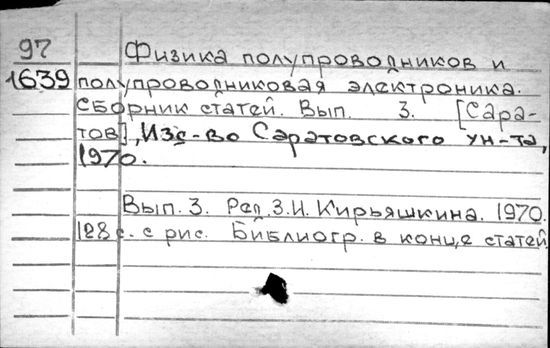 97 Физика полупроводников и
1639 полупроводниковая электроника.
Сборник статей. Вып. 3. [Сара-
тов], Изд-во Саратовского ун-та,
1970.
Вып. 3. Ред. З.И. Кирьяшкина. 1970.
128 с. с рис. Библиогр. в конце статей.